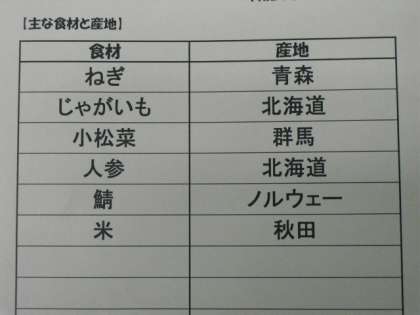 【主な食材と産地】
食材 産地
ねぎ 青森
じゃがいも 北海道
小松菜 群馬
人参 北海道
鯖 ノルウェー
米 秋田